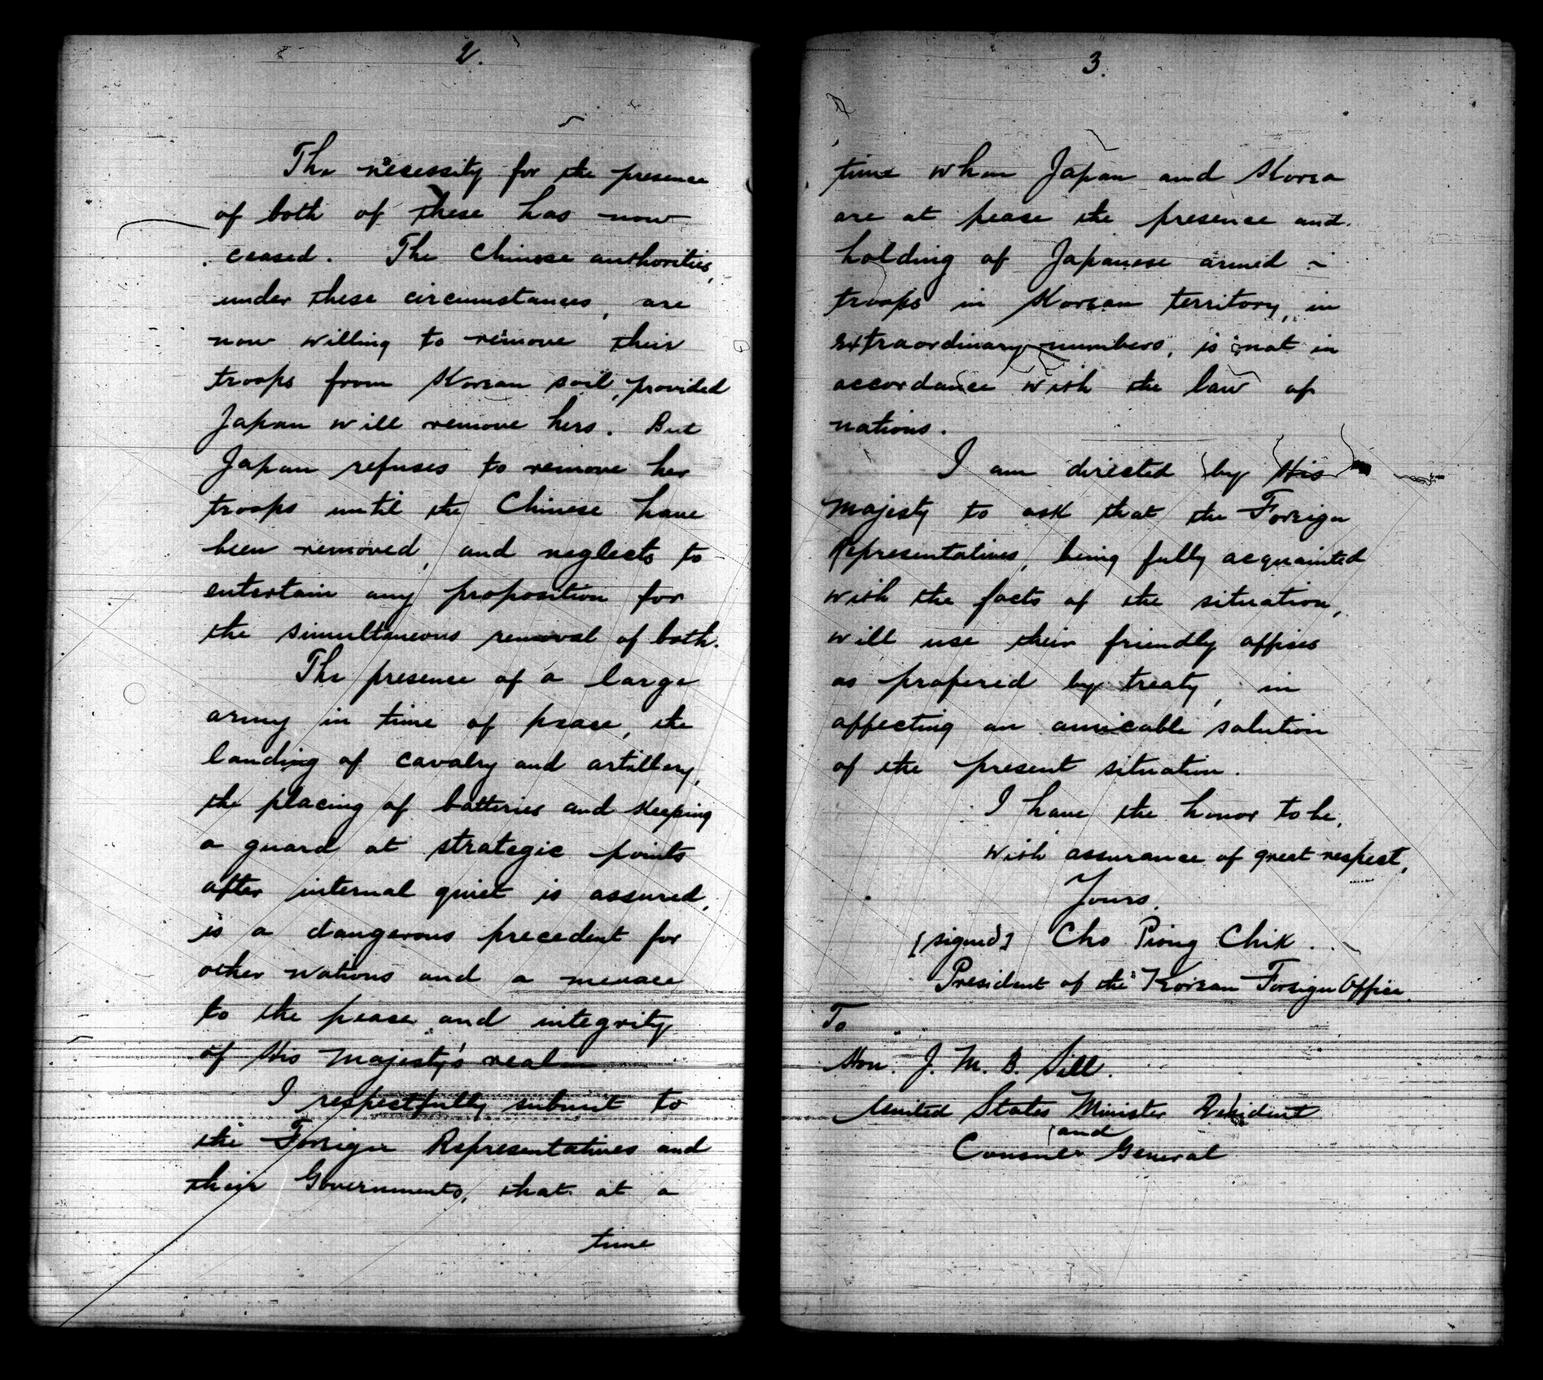 2.
The necessity for the presence
of both of these has now
ceased. The Chinese authorities,
under these circumstances, are
now willing to remove their
troops from Korean soil, provided
Japan will remove hers. But
Japan refuses to remove her
troops until the Chinese have
been removed, and neglects to
entertain any proposition for
the simultaneous removal of both.
The presence of a large
army in time of peace, the
landing of cavalry and artillery,
the placing of batteries and keeping
a guard at strategic points
after internal quiet is assured,
is a dangerous precedent for
other nations and a menace
to the peace and integrity
of His Majesty's realm
I respectfully submit to
the Foreign Representatives and
their Governments, that at a
time
3.
time when Japan and Korea
are at peace the presence and
holding of Japanese armed
troops in Korean territory, in
extraordinary numbers, is not in
accordance with the law of
nations.
I am directed by His
Majesty to ask that the Foreign
Representatives, being fully acquainted
with the facts of the situation,
will use their friendly offices
as profered by treaty, in
affecting an amicable solution
of the present situation.
I have the honor to be,
with assurance of great respect,
Yours,
[signed] Cho Piong Chik.
President of the Korean Foreign Office.
To
Hon. J. M. B. Sill.
United States Minister Resident
and
Consul General